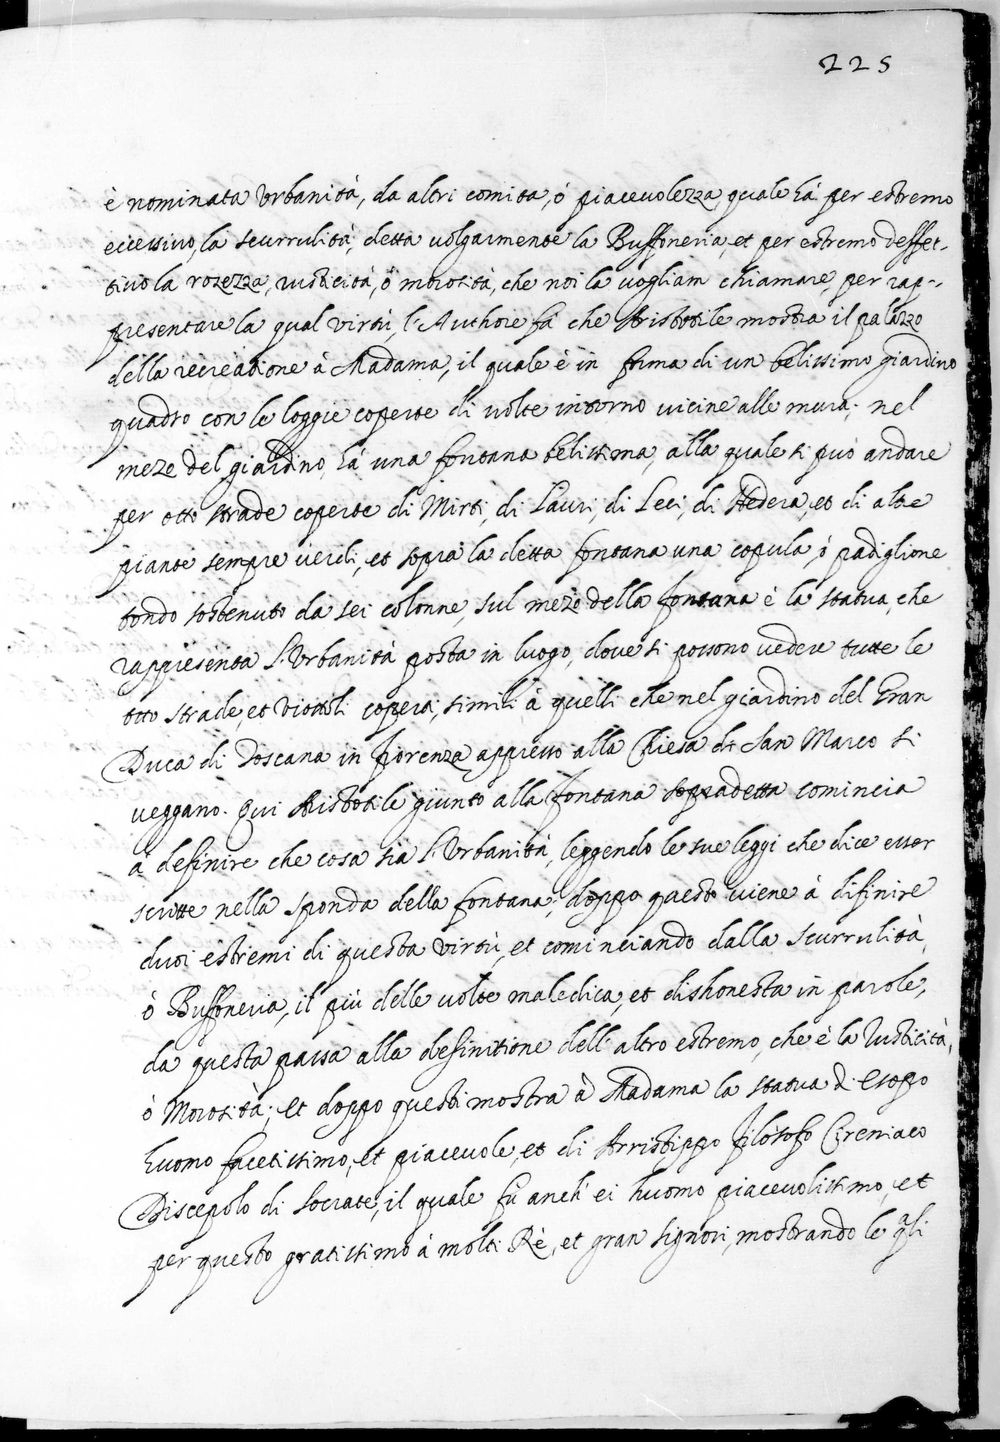 225
è nominata Urbanità, da altri comita, ó piacevolezza, quale hà per estremo
eccessiuo, la scurrulità, detta volgarmente la Buffoneria, et per estremo deffet-
tiuo la rozezza, rusticità, ó morosità, che noi la vogliam chiamare, per rap-
presentare la qual virtù, l'Authore fà che Aristotile mostra il palazzo
della recreatione à Madama, il quale è in forma di un belissimo giardino
quadro con le loggie coperte di volte intorno vicine alle mura; nel
meze del giardino hà una fontana belissima, alla quale si può andare
per otto strade coperte di Mirti, di Lauri, di Leci, di Hedera, et di altre
piante sempre verdi, et sopra la detta fontana una copula, ó padiglione
tondo sostenuto da sei colonne, sul meze della fontana è la statua, che
rappresenta l'Urbanità posta in luogo, dove si possono vedere tutte le
otto strade, et viottoli coperti, simili à quelli che nel giardino del Gran
Duca di Toscana in Fiorenza appresso alla Chiesa di San Marco si
veggano. Qui Aristotile giunto alla fontana sopradetta comincia
à definire che cosa sia l'Urbanità, leggendo le sue leggi che dice esser
scritte nella sponda della fontana; doppo questo viene à difinire
duoi estremi di questa virtù, et cominciando dalla scurrulità,
ó Buffoneria, il più delle volte maledica, et dishonesta in parole,
da questa passa alla definitione dell'altro estremo, che è la rusticità,
ó Morosità; et doppo questi mostra à Madama la statua di Esopo
huomo facetissimo, et piacevole, et di Arristippo filosofo Cireniaco
Discepolo di Socrate, il quale fù anch'ei huomo piacevolissimo, et
per questo gratissimo á molti Rè, et gran signori, mostrando le qli